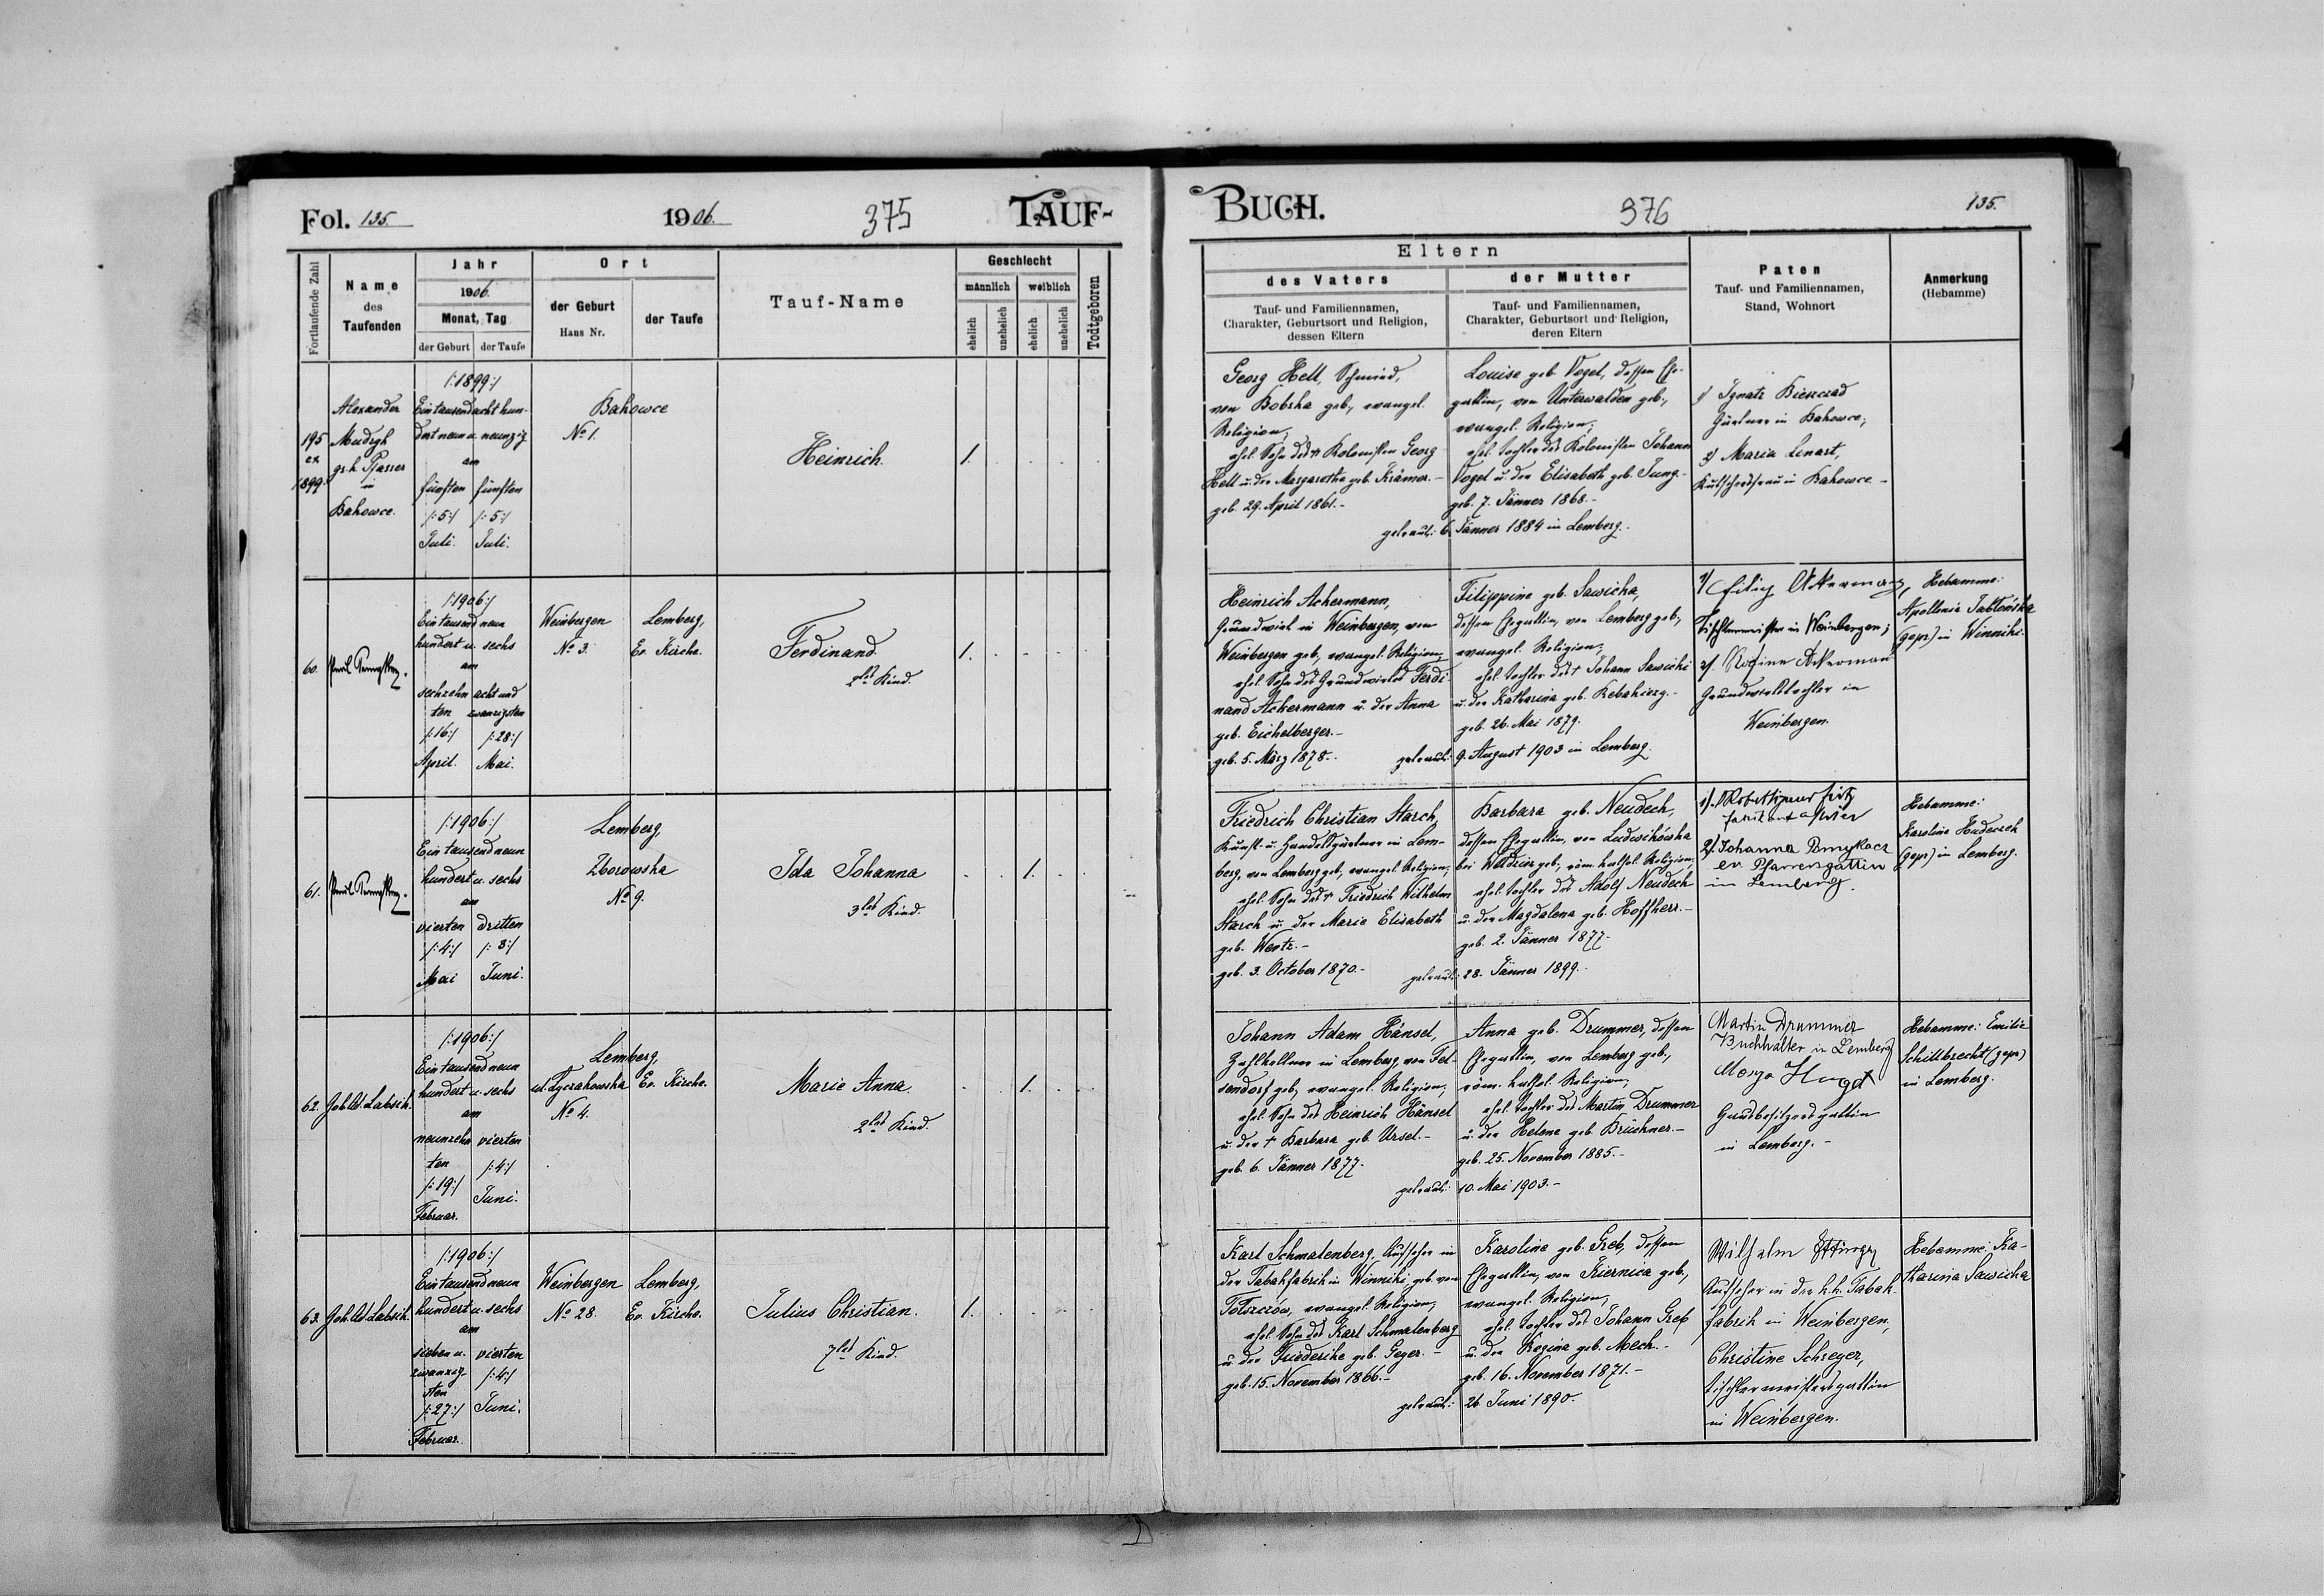 Fol. 135.
1906.
375
TAUF-
Fortlaufende Zahl
Name
des
Taufenden
Jahr
1906.
Monat, Tag
der Geburt
der Taufe
Ort
der Geburt
Haus Nr.
der Taufe
Tauf-Name
Geschlecht
männlich
weiblich
ehelich
unehelich
ehelich
unehelich
Todtgeboren
195
ex
1899.
Alexander
gr. k. Pfarrer
in
Bahowce.
/:1899:/
Eintausendachthun-
dert neun u. neunzig
am
fünften fünften
/:5:/ /:5:/
Juli. Juli.
Bahowce
No 1.
Heinrich.
1.
60.
/:1906:/
Eintausendneun
hundert u. sechs
am
sechzehn acht und
ten zwanzigsten
/:16:/ /:28:/
April. Mai.
Weinbergen
No 3.
Lemberg,
Ev. Kirche.
Ferdinand.
Kind.
1.
61.
/:1906:/
Eintausendneun
hundert u. sechs
am
vierten dritten
/:4:/ /:3:/
Mai Juni.
Lemberg,
Zborowska
No 9.
Ida Johanna
3tes Kind.
1.
62.
/:1906:/
Eintausendneun
hundert u. sechs
am
neunzehn vierten
ten /:4:/
/:19:/ Juni.
Februar.
Lemberg,
ul. Łyczakowska Ev. Kirche.
No 4.
Marie Anna.
2tes Kind.
1.
63.
/:1906:/
Eintausendneun
hundert u. sechs
am
sieben u. vierten
zwanzig- /:4:/
sten
/:27:/ Juni.
Februar.
Weinbergen
No 28.
Lemberg,
Ev. Kirche.
Julius Christian.
7tes Kind.
1.
BUCH.
376
135.
Eltern
des Vaters
Tauf- und Familiennamen,
Charakter, Geburtsort und Religion,
dessen Eltern
der Mutter
Tauf- und Familiennamen,
Charakter, Geburtsort und Religion,
deren Eltern
Paten
Tauf- und Familiennamen,
Stand, Wohnort
Anmerkung
(Hebamme)
Georg Hell, Schmied,
von Bobrka geb., evangel.
Religion,
ehel. Sohn des † Kolonisten Georg
Hell u. der Margaretha geb. Krämer.-
geb. 29. April 1861.-
Louise geb. Vogel, dessen Ehe-
gattin, von Unterwalden geb.,
evangel. Religion;
ehel. Tochter des Kolonisten Johann
Vogel u. der Elisabeth geb. Jung.-
geb. 7. Jänner 1868.-
getraut: 6. Jänner 1884 in Lemberg.
1) Ignatz
Gärtner in Bahowce;
2) Maria Lenart,
Kutschersfrau in Bahowce.-
Heinrich Ackermann,
Grundwirt in Weinbergen, von
Weinbergen geb., evangel. Religion;
ehel. Sohn des Grundwirtes Ferdi-
nand Ackermann u. der Anna
geb. Eichelberger.-
geb. 5. März 1878.-
Filippine geb. Sawicka,
dessen Ehegattin, von Lemberg geb.,
evangel. Religion,
ehel. Tochter des † Johann Sawicki
u. der Katharina geb.
geb. 26. Mai 1879.
getraut: 9. August 1903 in Lemberg.
1/ Filip Ackermann,
Tischlermeister in Weinbergen;
2/ Rosine Ackermann
Grundwirtstochter in
Weinbergen.
Hebamme:
Apollonia Jabłońska
(gepr.) in Winniki.
Friedrich Christian Starch,
Kunst- u. Handelsgärtner in Lem-
berg, von Lemberg geb., evangel. Religion;
ehel. Sohn des † Friedrich Wilhelm
Starch u. der Marie Elisabeth
geb. Wentz.-
geb. 3. October 1870.-
Barbara geb. Neudeck,
dessen Ehegattin, von Ludwikówka
bei geb., röm. kathol. Religion,
ehel. Tochter des Adolf Neudeck
u. der Magdalena geb. Hoffherr.-
geb. 2. Jänner 1877.-
getraut: 28. Jänner 1899.
2/. Johanna Pomykacz
ev. Pfarrersgattin
in Lemberg.
Hebamme:
Karoline Hudeczek
(gepr.) in Lemberg.
Johann Adam Hänsel,
Zahlkellner in Lemberg, von Fel-
sendorf geb., evangel. Religion,
ehel. Sohn des Heinrich Hänsel
u. der † Barbara geb. Ursel.-
geb. 6. Jänner 1877.
Anna geb. Drummer, dessen
Ehegattin, von Lemberg geb.,
röm. kathol. Religion,
ehel. Tochter des Martin Drummer
u. der Helene geb. Brückner.-
geb. 25. November 1885.-
getraut: 10. Mai 1903.-
Martin Drummer
Buchhalter in Lemberg
in Lemberg.-
Hebamme: Emilie
Schittbrecht (gepr)
in Lemberg.
Karl Schmalenberg, Aufseher in
der Tabakfabrik in Winniki, geb. von
evangel. Religion,
ehel. Sohn des Karl Schmalenberg
u. der Friederike geb. Geyer.-
geb. 15. November 1866.-
Karoline geb. Greb, dessen
Ehegattin, von Kiernica geb.,
evangel. Religion,
ehel. Tochter des Johann Greb
u. der Regina geb. Mech.-
geb. 16. November 1871.-
getraut: 26. Juni 1890.
Wilhelm Ettinger
Aufseher in der k.k. Tabak-
fabrik in Weinbergen,
Christine Schreyer,
Tischlermeistersgattin
in Weinbergen.
Hebamme: Ka-
tharina Sawicka